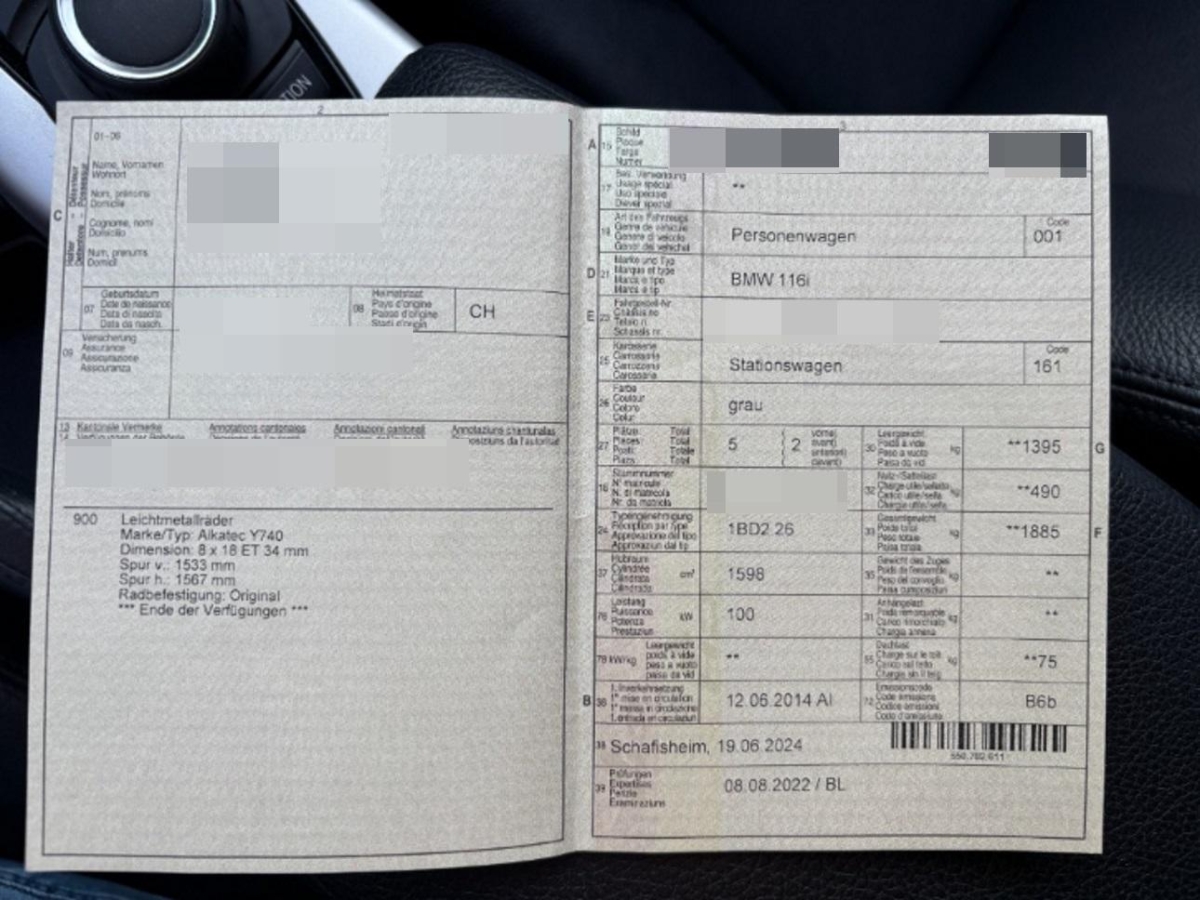 TION
2
01-09
Name, Vornamen
Wohnort
Nom, prénoms
Domicile
Cognome, nomi
Domicilio
Num, prenums
Domicil
C
07
Geburtsdatum
Date de naissance
Data di nascita
Data da nasch.
08
Heimatstaat
Pays d'origine
Paese d'origine
Stadi d'origin
CH
09
Versicherung
Assurance
Assicurazione
Assicuranza
13 Kantonale Vermerke
Annotations cantonales
Annotazioni cantonali
Annotaziuns chantunalas
14 Verfügungen der Behörde
900 Leichtmetallräder
Marke/Typ: Alkatec Y740
Dimension: 8 x 18 ET 34 mm
Spur v.: 1533 mm
Spur h.: 1567 mm
Radbefestigung: Original
*** Ende der Verfügungen ***
3
A 15
Schild
Plaque
Targa
Numer
17
Bes. Verwendung
Usage spécial
Uso speciale
Diever spezial
**
19
Art des Fahrzeugs
Genre de véhicule
Genere di veicolo
Gener dal vehichel
Personenwagen
Code
001
D 21
Marke und Typ
Marque et type
Marca e tipo
Marca e tip
BMW 116i
E 23
Fahrgestell-Nr.
Châssis no
Telaio n.
Schassis nr.
25
Karosserie
Carrosserie
Carrozzeria
Carossaria
Stationswagen
Code
161
26
Farbe
Couleur
Colore
Colur
grau
27
Plätze: Total
Places: Total
Posti: Totale
Plazs: Total
5
2
vorne)
avant)
anteriori)
davant)
30
Leergewicht
Poids à vide
Peso a vuoto
Paisa da vid
kg
**1395
G
18
Stammnummer
N° matricule
N. di matricola
Nr. da matricla
32
Nutz-/Sattellast
Charge utile/sellette
Carico utile/sella
Chargia utila/sella
kg
**490
24
Typengenehmigung
Réception par type
Approvazione del tipo
Approvaziun dal tip
1BD2 26
33
Gesamtgewicht
Poids total
Peso totale
Paisa totala
kg
**1885
F
37
Hubraum
Cylindrée
Cilindrata
Cilindrada
cm³
1598
35
Gewicht des Zuges
Poids de l'ensemble
Peso del convoglio
Paisa cumposiziun
kg
**
76
Leistung
Puissance
Potenza
Prestaziun
kW
100
31
Anhängelast
Poids remorquable
Carico rimorchiato
Chargia annexa
kg
**
78 kW/kg
Leergewicht
poids à vide
peso a vuoto
paisa da vid
**
55
Dachlast
Charge sur le toit
Carico sul tetto
Chargia sin il tetg
kg
**75
B 36
1. Inverkehrsetzung
1re mise en circulation
1a messa in circolazione
1. entrada en circulaziun
12.06.2014 AI
72
Emissionscode
Code émissions
Codice emissioni
Code d'emissiuns
B6b
38 Schafisheim, 19.06.2024
550.702.611
39
Prüfungen
Expertises
Perizie
Examinaziuns
08.08.2022 / BL